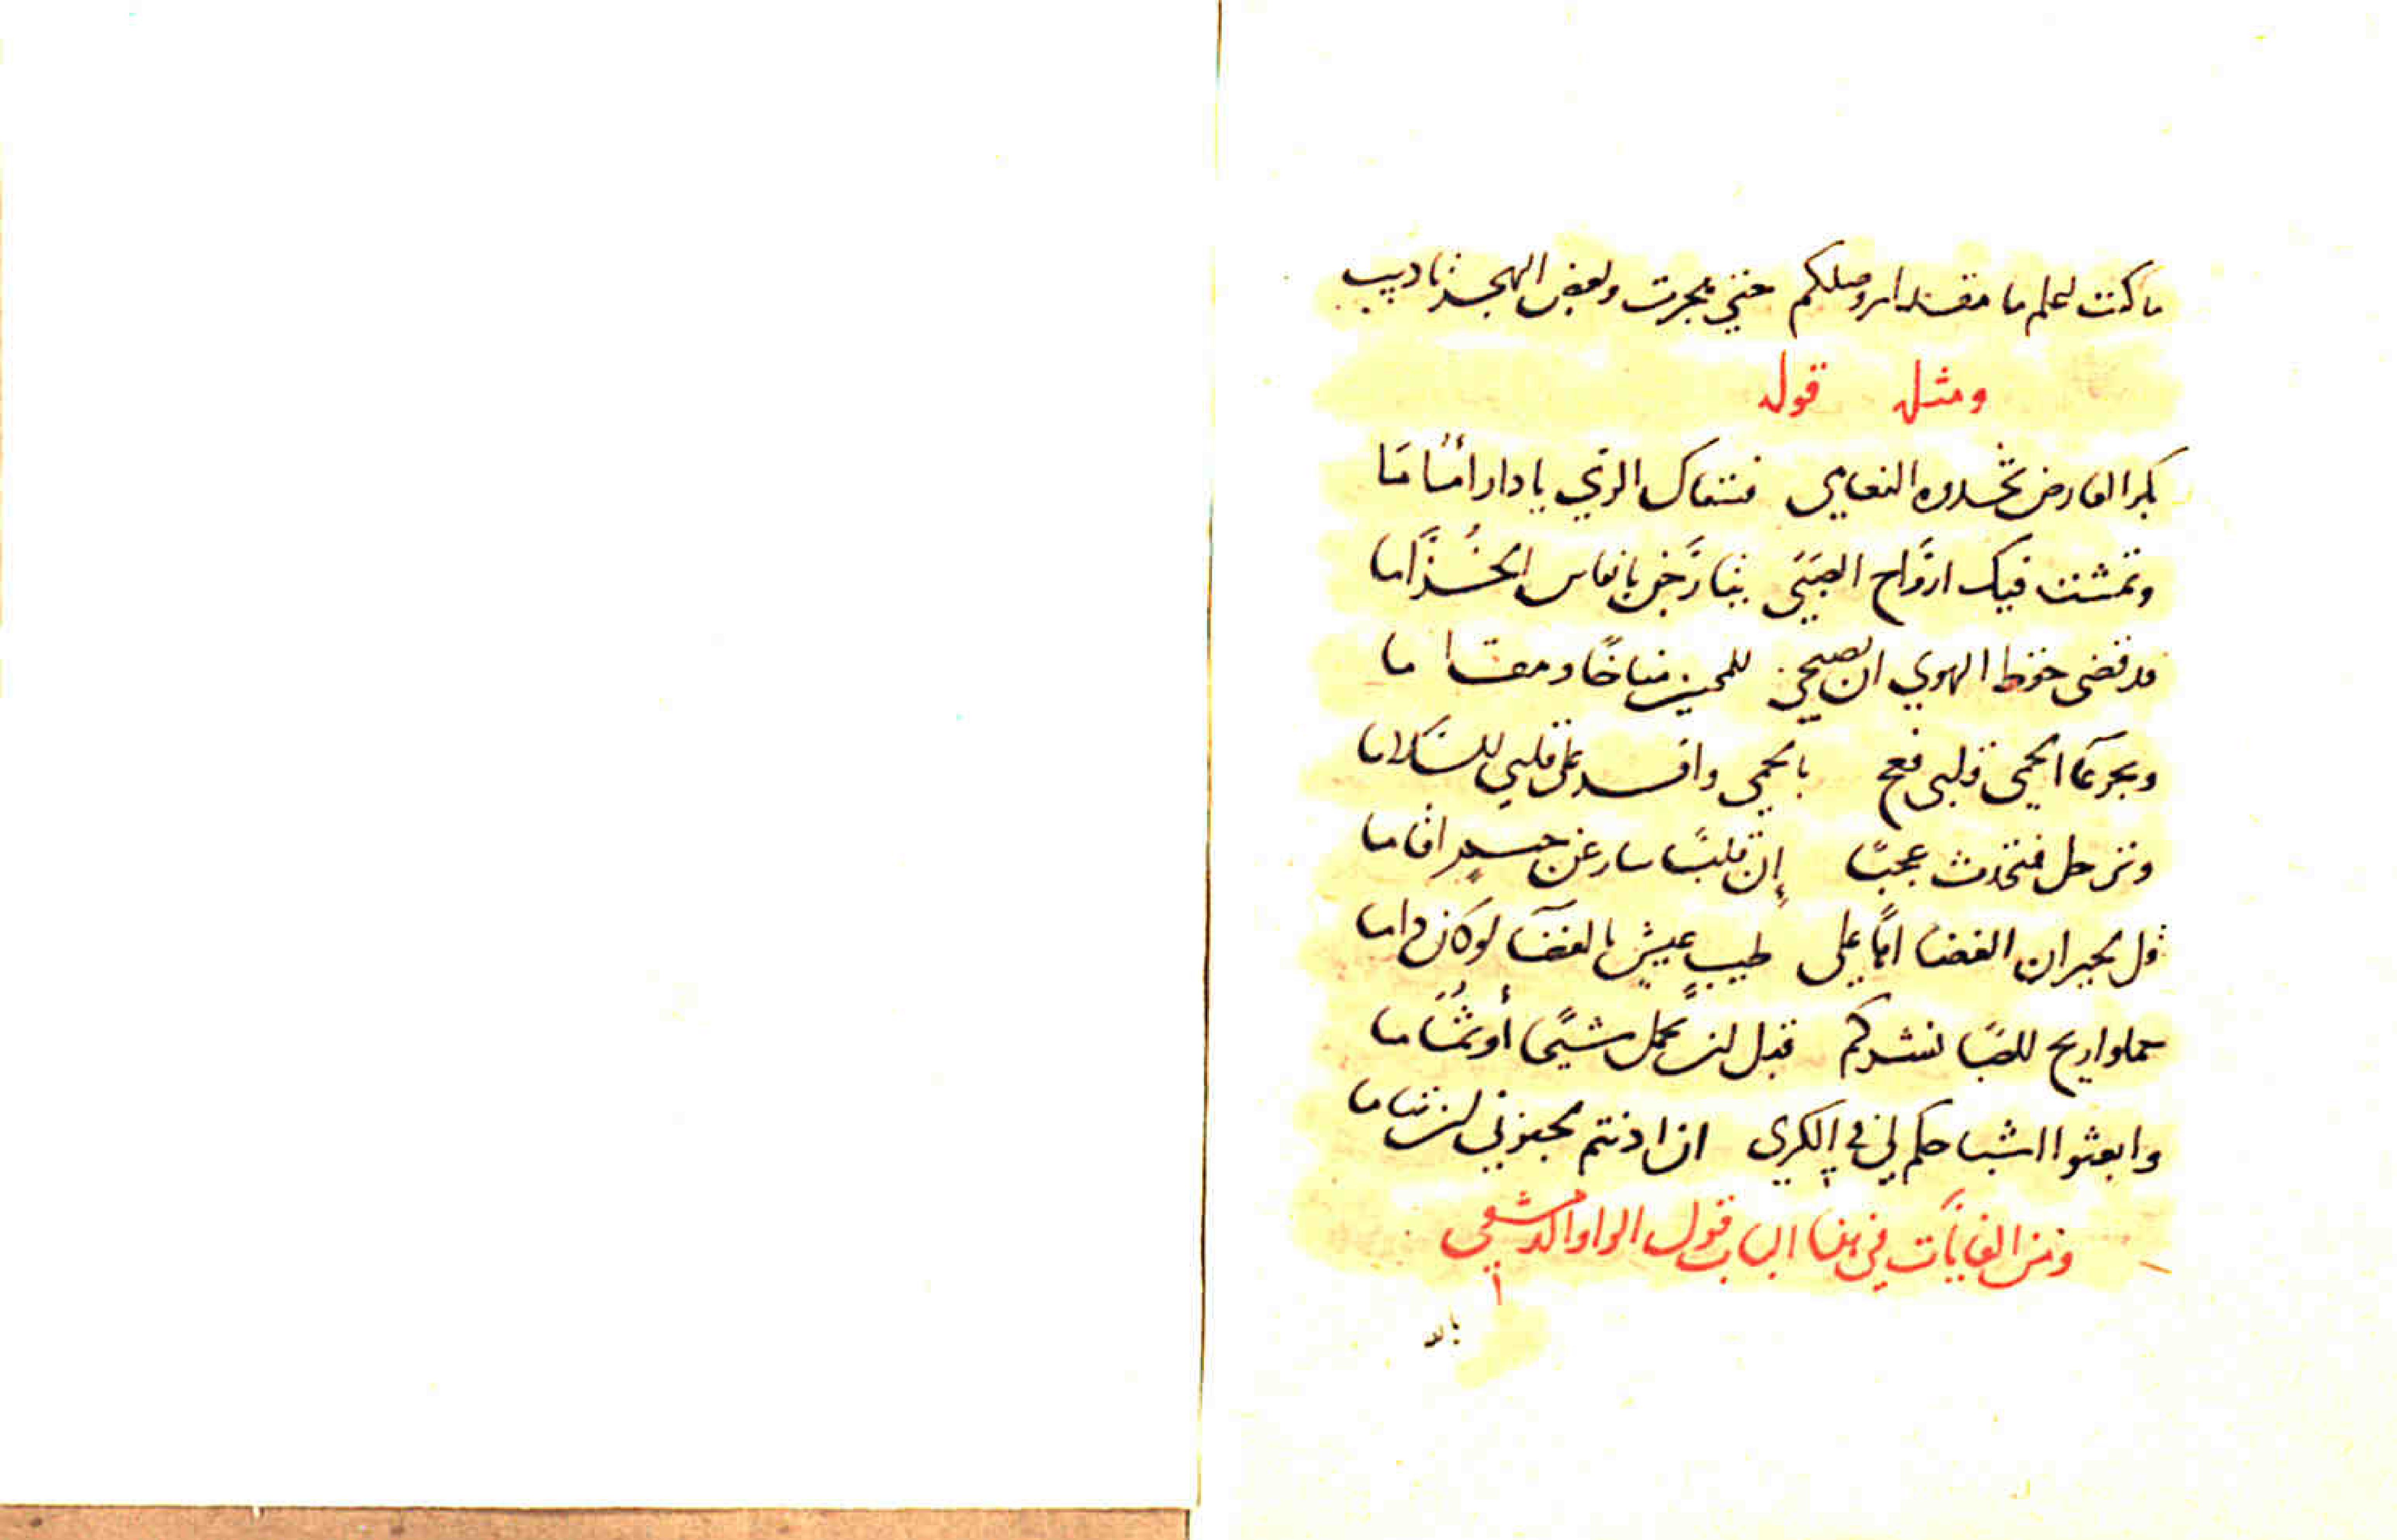 ما كنت اعلم ما مقدار وصلكم حتي هجرت وبعض الهجر تاديب
ومثل قوله
بكر العارض تحدوه النعامي فسقاك الري يا دار اُمَامَا
وتمشت فيك ارواح الصبي يتارجن بانفاس الخُزَاما
قد قضى حفظ الهوي ان تصبحي للمحبين مناخًا ومقاما
وبجرعاء الحمى قلبي فعج بالحمي واقر على قلبي السلاما
وترحل فتحدث عجبًا إن قلبًا سار عن جسمٍ اقاما
قل لجيران الغضا اهًا على طيبِ عيشٍ بالغضا لو كان داما
حملوا ريح الصبا نشركم قبل ان تحمل شيحًا أو ثُمَاما
وابعثوا اشباحكم لي في الكري ان اذنتم لجفوني ان تناما
ومن الغايات في هذا الباب قول الواوا الدمشقي
بالله